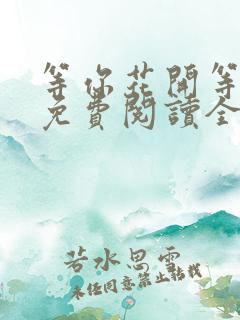 等你花開等
免費閱讀全
若水思雲
未任同意禁止轉載